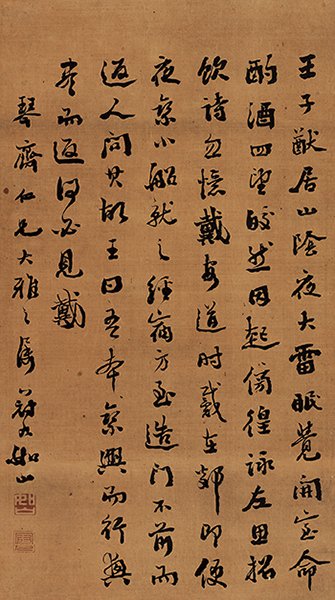 王子猷居山陰夜大雪眠覺開室命
酌酒四望皎然因起彷徨詠左思招
詩忽憶戴安道時戴在剡即便
夜乘小船就之經宿方至造門不前而
返人問其故王曰吾本乘興而行興
盡而返何必見戴
琴齋仁兄大雅之屬 如山